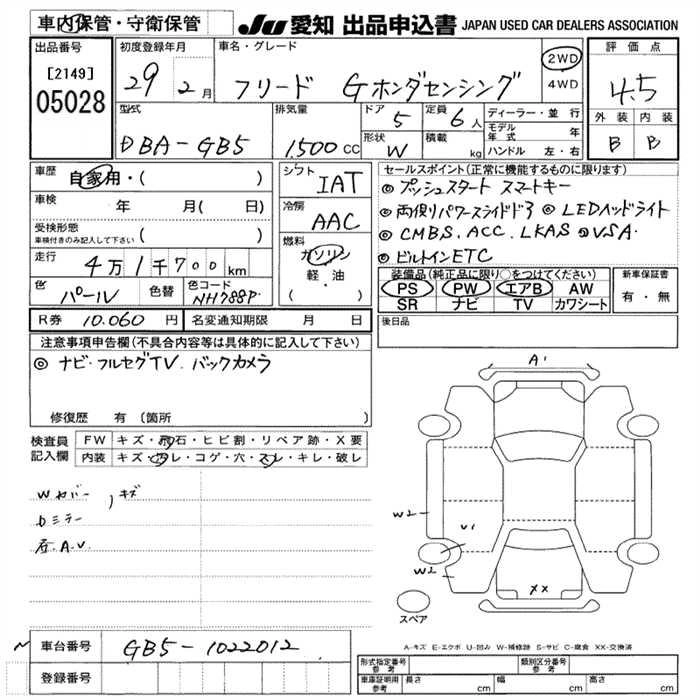 車内保管・守衛保管
JU 愛知 出品申込書 JAPAN USED CAR DEALERS ASSOCIATION
出品番号
[2149]
05028
初度登録年月
29 2月
車名・グレード
フリード Gホンダセンシング
2WD
4WD
評価点
4.5
外装 内装
B B
型式
DBA-GB5
排気量
1500 CC
ドア
5
定員
6人
形状
W
積載
kg
ディーラー・並行
モデル年式 年
ハンドル 左・右
車歴
自家用・( )
車検 年 月( 日)
受検形態
車検付きのみ記入して下さい ( )
走行 4万1千700km
色 パール 色替 色コード NH788P
シフト
IAT
冷房
AAC
燃料
ガソリン
軽・油
( )
セールスポイント(正常に機能するものに限ります)
◎ プッシュスタート スマートキー
◎ 両側パワースライドドア ◎ LEDヘッドライト
◎ CMBS. ACC. LKAS ◎VSA.
◎ ビルトインETC
装備品(純正品に限り○をつけてください)
PS PW エアB AW
SR ナビ TV カワシート
新車保証書
有・無
R券 10.060 円 名変通知期限 月 日
後日品
注意事項申告欄(不具合内容等は具体的に記入して下さい)
◎ ナビ・フルセグTV. バックカメラ
修復歴 有 (箇所 )
検査員記入欄
FW キズ・飛石・ヒビ割・リペア跡・X要
内装 キズ・汚レ・コゲ・穴・スレ・キレ・破レ
Wカバー , キズ
Dミラー
A.V.
A1
W2
U1
W2
XX
スペア
A-キズ E-エクボ U-凹み W-補修跡 S-サビ C-腐食 XX-交換済
車台番号 GB5-1022012
登録番号
形式指定番号 参考
類別区分番号 参考
車庫証明用 参考 長さ cm 幅 cm 高さ cm